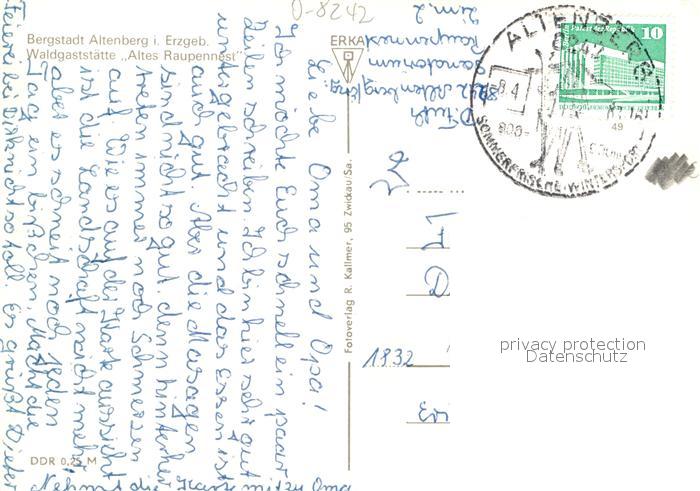 D-8242
Bergstadt Altenberg i. Erzgeb.
Waldgaststätte „Altes Raupennest"
ERKA
Liebe Oma und Opa!
Ich möchte Euch schnell ein paar
Zeilen schreiben. Ich bin hier sehr gut
untergebracht und das Essen ist
auch gut. Aber die Massagen
sind nicht so gut, denn hinterher
treten immer noch Schmerzen
auf. Wie es auf der Karte aussieht
ist die Landschaft nicht mehr,
aber es schneit noch jeden
Tag ein bißchen. Macht die
Feier bei nicht so toll. Es grüßt Dieter
Nehmt die Karte mit zu Oma
DDR 0,25 M
Fotoverlag R. Kallmer, 95 Zwickau/Sa.
Altenberg/Erzg.
Sanatorium
Raupennest
Zim. 2
ALTENBERG
8242
SOMMERFRISCHE · WINTERSPORT
10
49
1832
privacy protection
Datenschutz